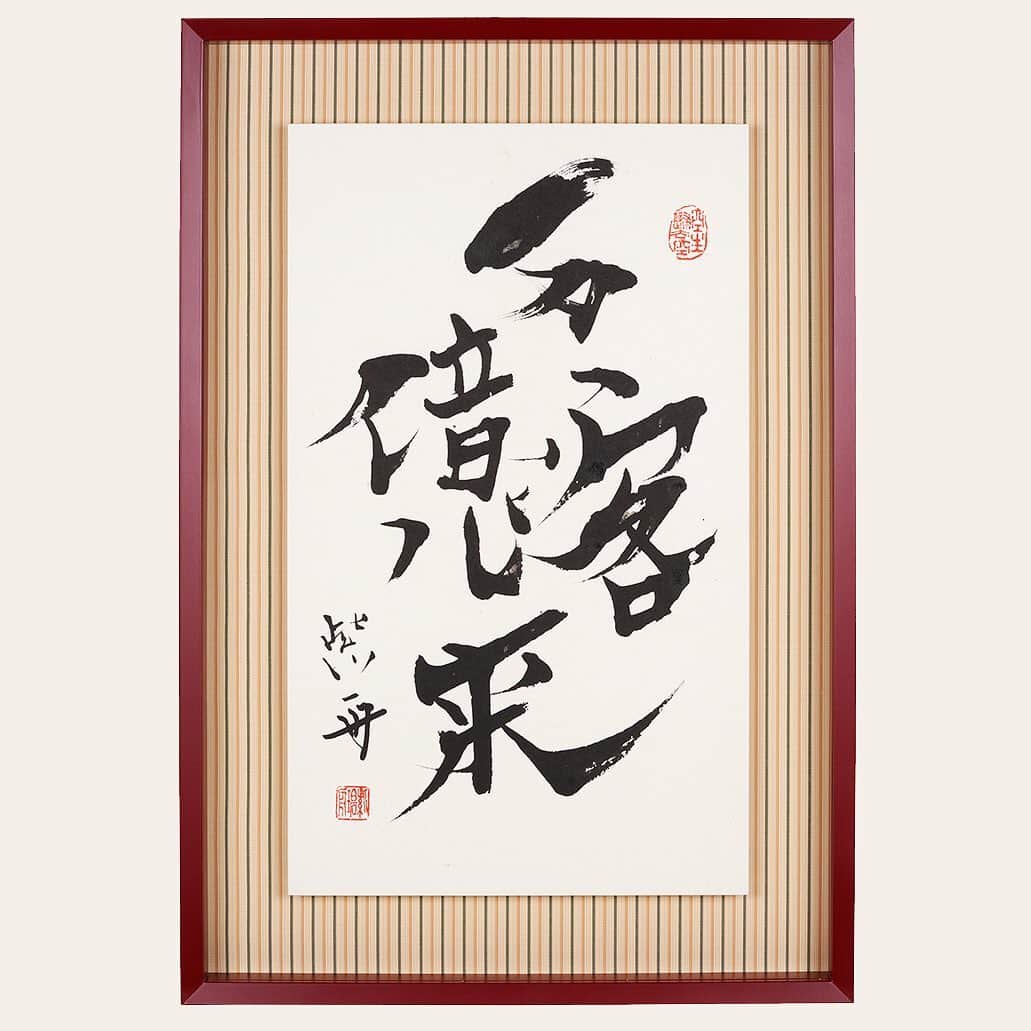 万客億来
紫舟